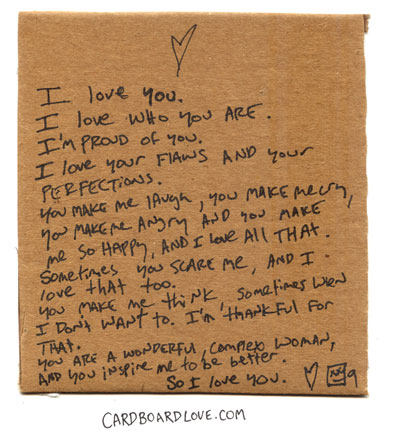 I love you.
I love who you ARE.
I'm PROUD of you.
I love your FlAWS AND your
PERFECTIONS.
you MAKE me lAugh, you MAKE me cry,
you MAKE me Angry AND you MAKE
me so HAppy, AND I love All THAT.
Sometimes you SCARE me, AND I
love that too.
you MAKE me think, sometimes when
I DON'T WANT to. I'm thankful FOR
THAT.
you ARE A WONDERFUL, complex woman,
AND you inspire me to be better.
So I love you.
CARDBOARDLOVE.COM